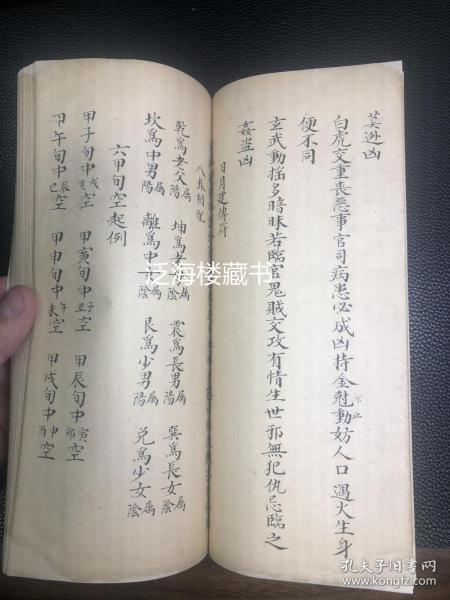 莫迯凶
白虎交重喪惡事官司病患必成凶持金尅動妨人口遇火生身
下止
便不同
玄武動搖多暗昧若臨官鬼賊交攻有情生世邪無犯仇忌臨之
姦盜凶
日月建傳符
八卦相配
乾爲老父属陽 坤爲老 属陰 震爲長男属陽 巽爲長女属陰
坎爲中男属陽 離爲中女属陰 艮爲少男属陽 兌爲少女属陰
六甲旬空起例
甲子旬中戌亥空 甲寅旬中子丑空 甲辰旬中寅卯空
甲午旬中辰巳空 甲申旬中午未空 甲戌旬中申酉空
泛海楼藏书
孔夫子旧书网
www.kongfz.com